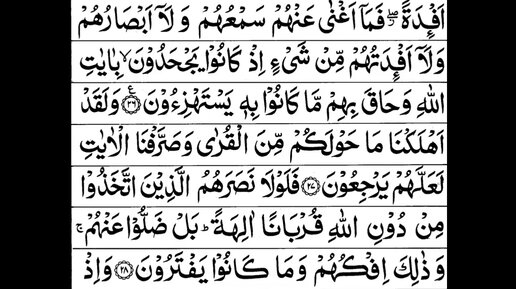 اَفْـِٕدَةً ۖ فَمَاۤ اَغْنٰى عَنْهُمْ سَمْعُهُمْ وَ لَاۤ اَبْصَارُهُمْ
وَلَاۤ اَفْـِٕدَتُهُمْ مِّنْ شَیْءٍ اِذْ كَانُوْا یَجْحَدُوْنَ ۙ بِاٰیٰتِ
اللّٰهِ وَحَاقَ بِهِمْ مَّا كَانُوْا بِهٖ یَسْتَهْزِءُوْنَ ﴿۲۶﴾ وَلَقَدْ
اَهْلَكْنَا مَا حَوْلَكُمْ مِّنَ الْقُرٰى وَصَرَّفْنَا الْاٰیٰتِ
لَعَلَّهُمْ یَرْجِعُوْنَ ﴿۲۷﴾ فَلَوْلَا نَصَرَهُمُ الَّذِیْنَ اتَّخَذُوْا
مِنْ دُوْنِ اللّٰهِ قُرْبَانًا اٰلِهَةً ؕ بَلْ ضَلُّوْا عَنْهُمْ ۚ
وَ ذٰلِكَ اِفْكُهُمْ وَ مَا كَانُوْا یَفْتَرُوْنَ ﴿۲۸﴾ وَاِذْ